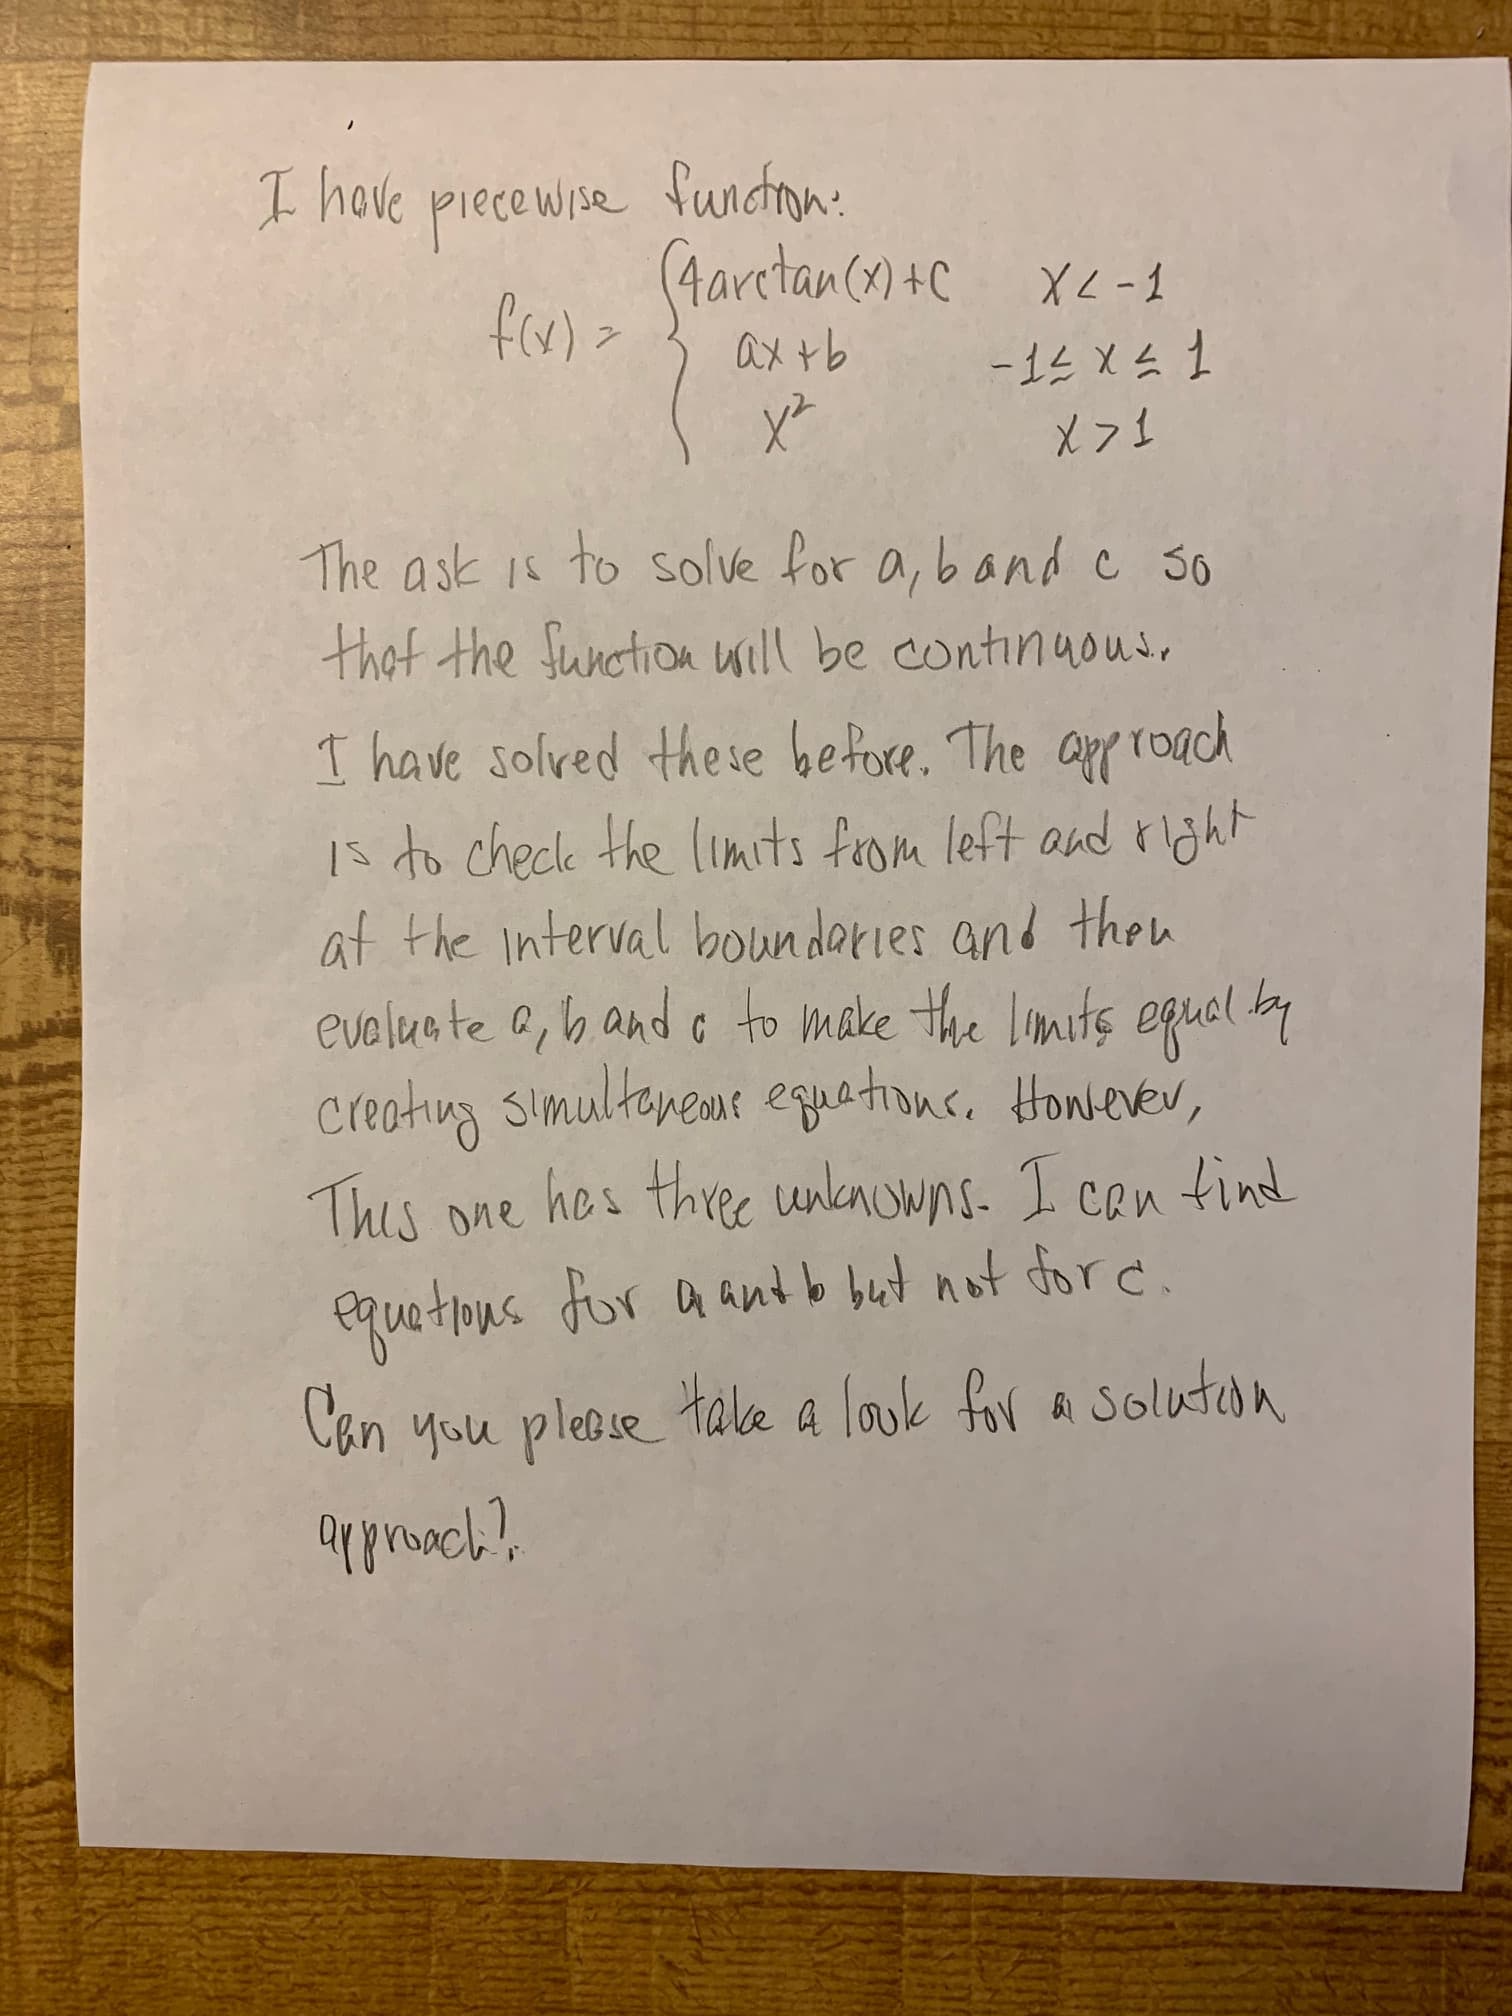 I have piecewise function:
f(x) = { 4arctan(x) + C    x < -1
ax + b    -1 ≤ x ≤ 1
x²    x > 1
The ask is to solve for a, b and c so
that the function will be continuous.
I have solved these before. The approach
is to check the limits from left and right
at the interval boundaries and then
evaluate a, b and c to make the limits equal by
creating simultaneous equations. However,
This one has three unknowns. I can find
equations for a and b but not for c.
Can you please take a look for a solution
approach?